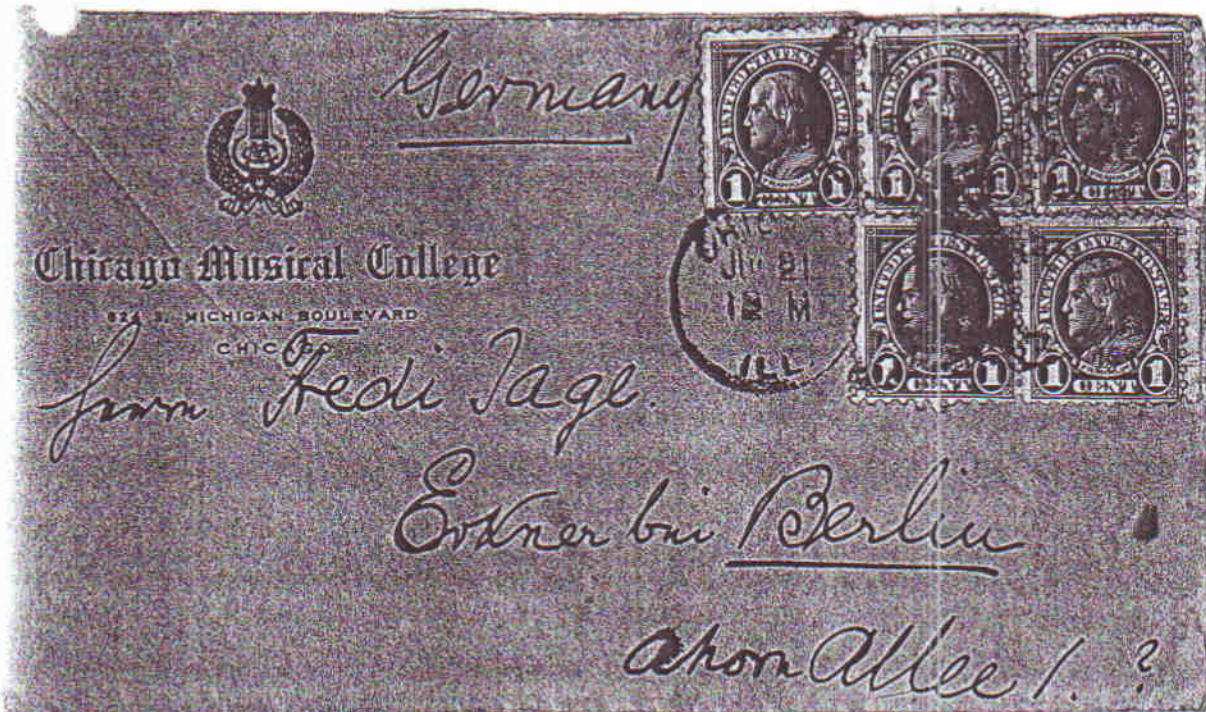 Germany
UNITED STATES POSTAGE
1 CENT 1
UNITED STATES POSTAGE
1 1
UNITED STATES POSTAGE
1 CENT 1
UNITED STATES POSTAGE
1 CENT 1
UNITED STATES POSTAGE
1 CENT 1
Chicago Musical College
624 S. MICHIGAN BOULEVARD
CHICAGO
21
12 M
ILL
Herrn Fredi Jage.
Erkner bei Berlin
Ahorn Allee 1. ?